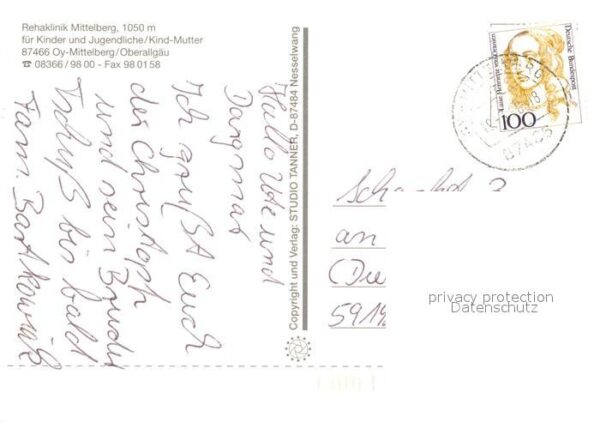 Rehaklinik Mittelberg, 1050 m
für Kinder und Jugendliche/Kind-Mutter
87466 Oy-Mittelberg/Oberallgäu
☎ 08366/98 00 - Fax 98 01 58
Hallo Ute und
Dargmar
Ich grüßt Euch
der Christoph
und sein Bruder
Tschüß bis bald
Fam. Bartkowiak
Copyright und Verlag: STUDIO TANNER, D-87484 Nesselwang
Deutsche Bundespost
Luise Henriette von Oranien
100
87466
an
5919
privacy protection
Datenschutz